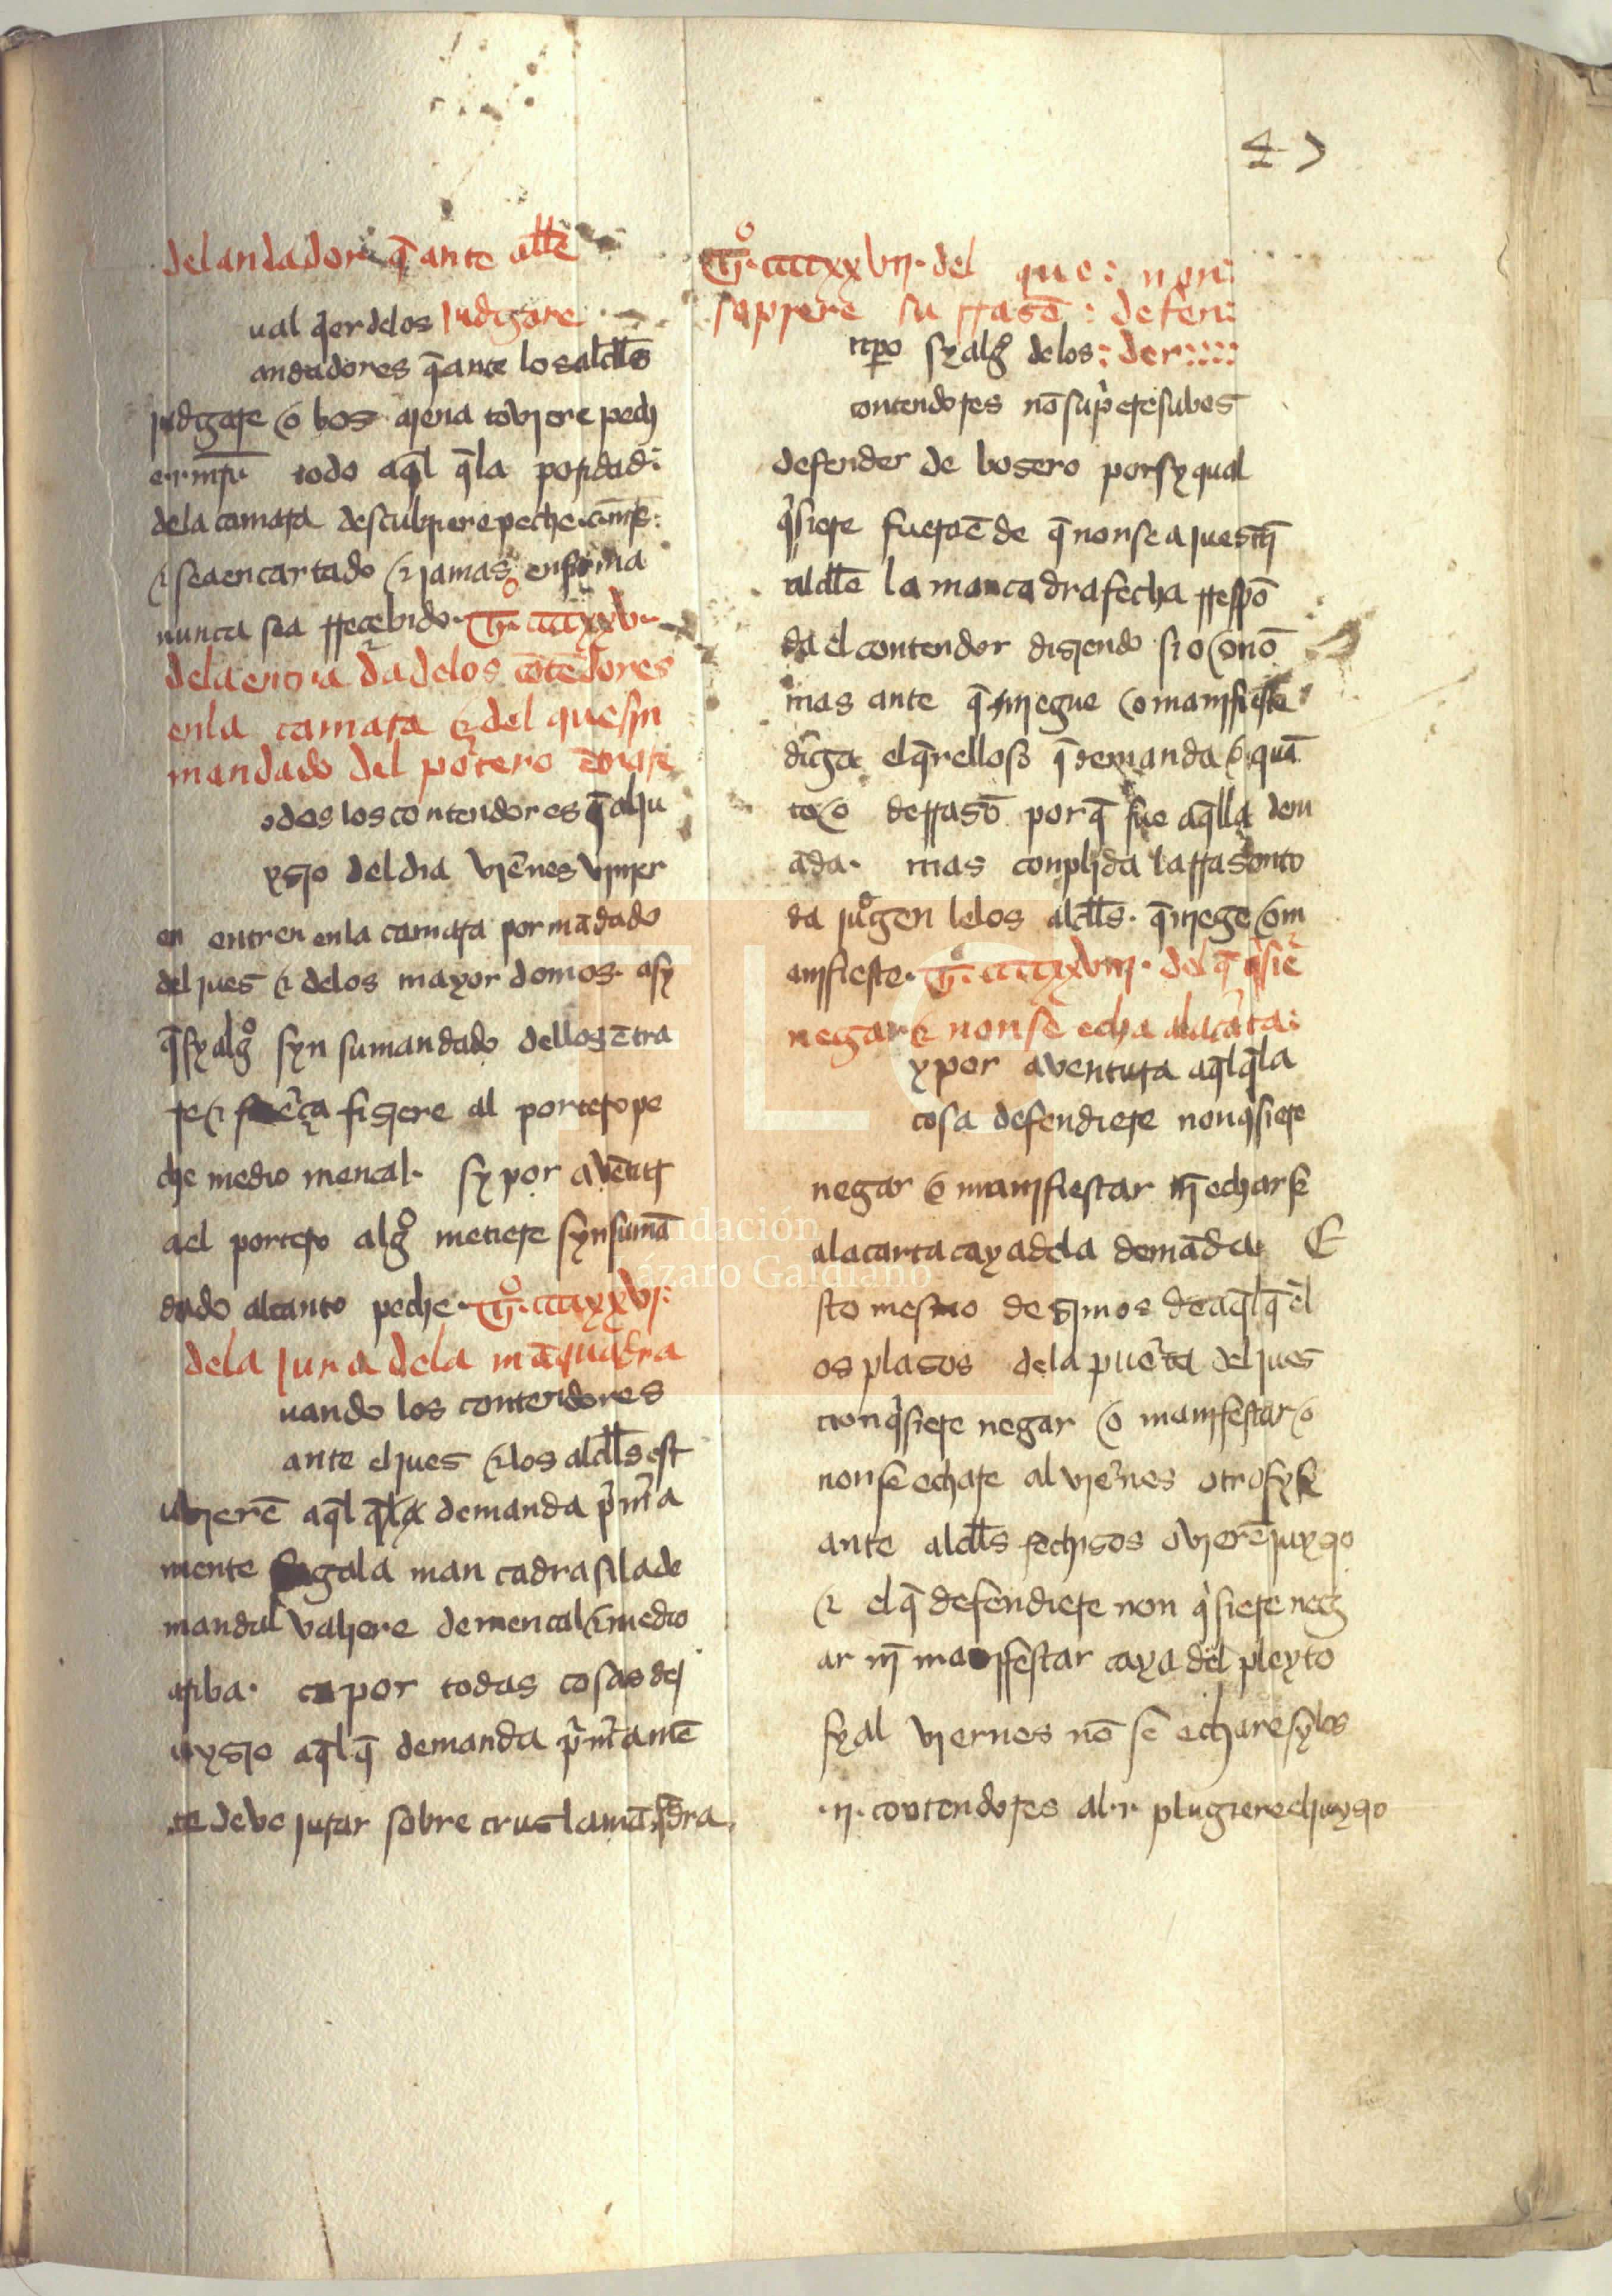 47
del andador q̄ ante alłłe
judgare
ual q̄er delos
andadores q̄ ante los alcłłs
judgare o bos ajena toujere pech
e .i. mr̄. todo aq̄l q̄ la poridad
dela camara descubrjere peche .c. mrs̄.
⁊ sea encartado ⁊ jamas en firma
nunca sea rreçebido. Tº. ccccxxv.
dela entrada delos cōtēdores
enla camara ⁊ del que sin
mandado del portero ētrare
odos los contendores q̄ al ju
ysio del dia vjernes vinjer
en entren enla camara por mādado
del jues ⁊ delos mayor domos. asy
q̄ sy algº syn su mandado dellos ētra
re ⁊ fuerça fisiere al portero pe
che medio mencal. sy por auētur
a el portero algº metiere syn su mā
dado al canto peche. Tº. ccccxxvj.
dela jura dela māquadra
uando los contendores
ante el jues ⁊ los alcłłs est
uvierē aq̄l q̄la demanda p'm̄a
mente faga la man cadra si la de
manda valiere de mencal ⁊ medio
arriba. ca por todas cosas de j
uysio aq̄l q̄ demanda p'm̄amē
te deve jurar sobre crus la māq̄dra
Tº. ccccxxvij. del que: non:
sopiere su rrasō: defen:
der::::
npero sy algº delos
contendores nō sup'ere se ubes
defender de bosero por sy qual
q'siere fueras ēde q̄ non sea jues nj̄
alcłłe la mancadra fecha rrespō
da el contendor disiendo si o o nō
mas ante q̄ njegue o manifieste
diga el q̄relloso q̄ demanda o quā
to o de rrasō por q̄ fue aq̄lla dem
āda. mas conplida la rrason to
da jusgen lelos alcłłs. q̄ njege o m
anifieste. Tº. ccccxxviij. del q̄ q'sie
negar ⁊ non se echa ala carta:
y por aventura aq̄l q̄ la
cosa defendiere non q'siere
negar o manifiestar nj̄ echarse
ala carta caya dela demāda. E
sto mesmo desimos de aq̄l q̄ el
os plasos dela puerta del jues
non q'siere negar o manifestar o
non se echare al viernes otrosy se
ante alcłłs fechisos ovierē juysio
⁊ el q̄ defendiere non q'siere neg
ar nj̄ manifestar caya del pleyto
sy al viernes nō se echare sy los
.ij. contendores al .r. plugiere el juysio
Fundación
Lázaro Galdiano